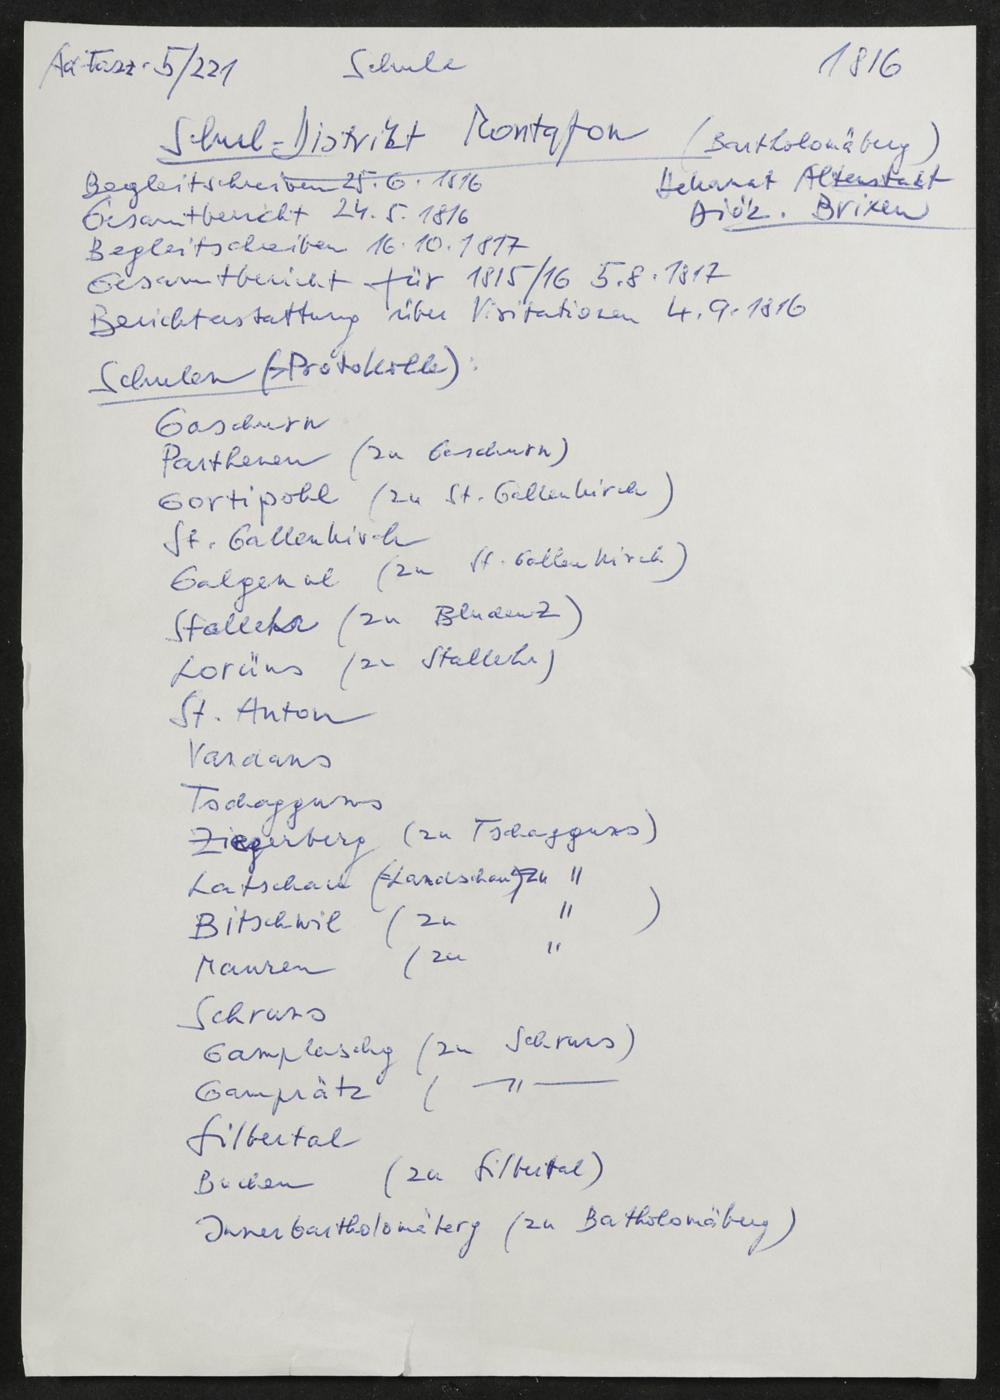 5/221 Schule 1816
Schul-Distrikt Montafon (Bartholomäberg)
Begleitschreiben 25.6.1816 Dekanat Altenstadt
Gesamtbericht 24.5.1816 Diöz. Brixen
Begleitschreiben 16.10.1817
Gesamtbericht für 1815/16 5.8.1817
Berichterstattung über Visitationen 4.9.1816
Schulen (→Protokolle):
Gaschurn
Parthenen (zu Gaschurn)
Gortipohl (zu St. Gallenkirch)
St. Gallenkirch
Galgenul (zu St. Gallenkirch)
Stallehr (zu Bludenz)
Lorüns (zu Stallehr)
St. Anton
Vandans
Tschagguns
Ziegerberg (zu Tschagguns)
Latschau (=Landschau) zu "
Bitschwil (zu " )
Mauren (zu "
Schruns
Gamplaschg (zu Schruns)
Gamprätz ( — " —
Silbertal
Buchen (zu Silbertal)
Innerbartholomäberg (zu Bartholomäberg)